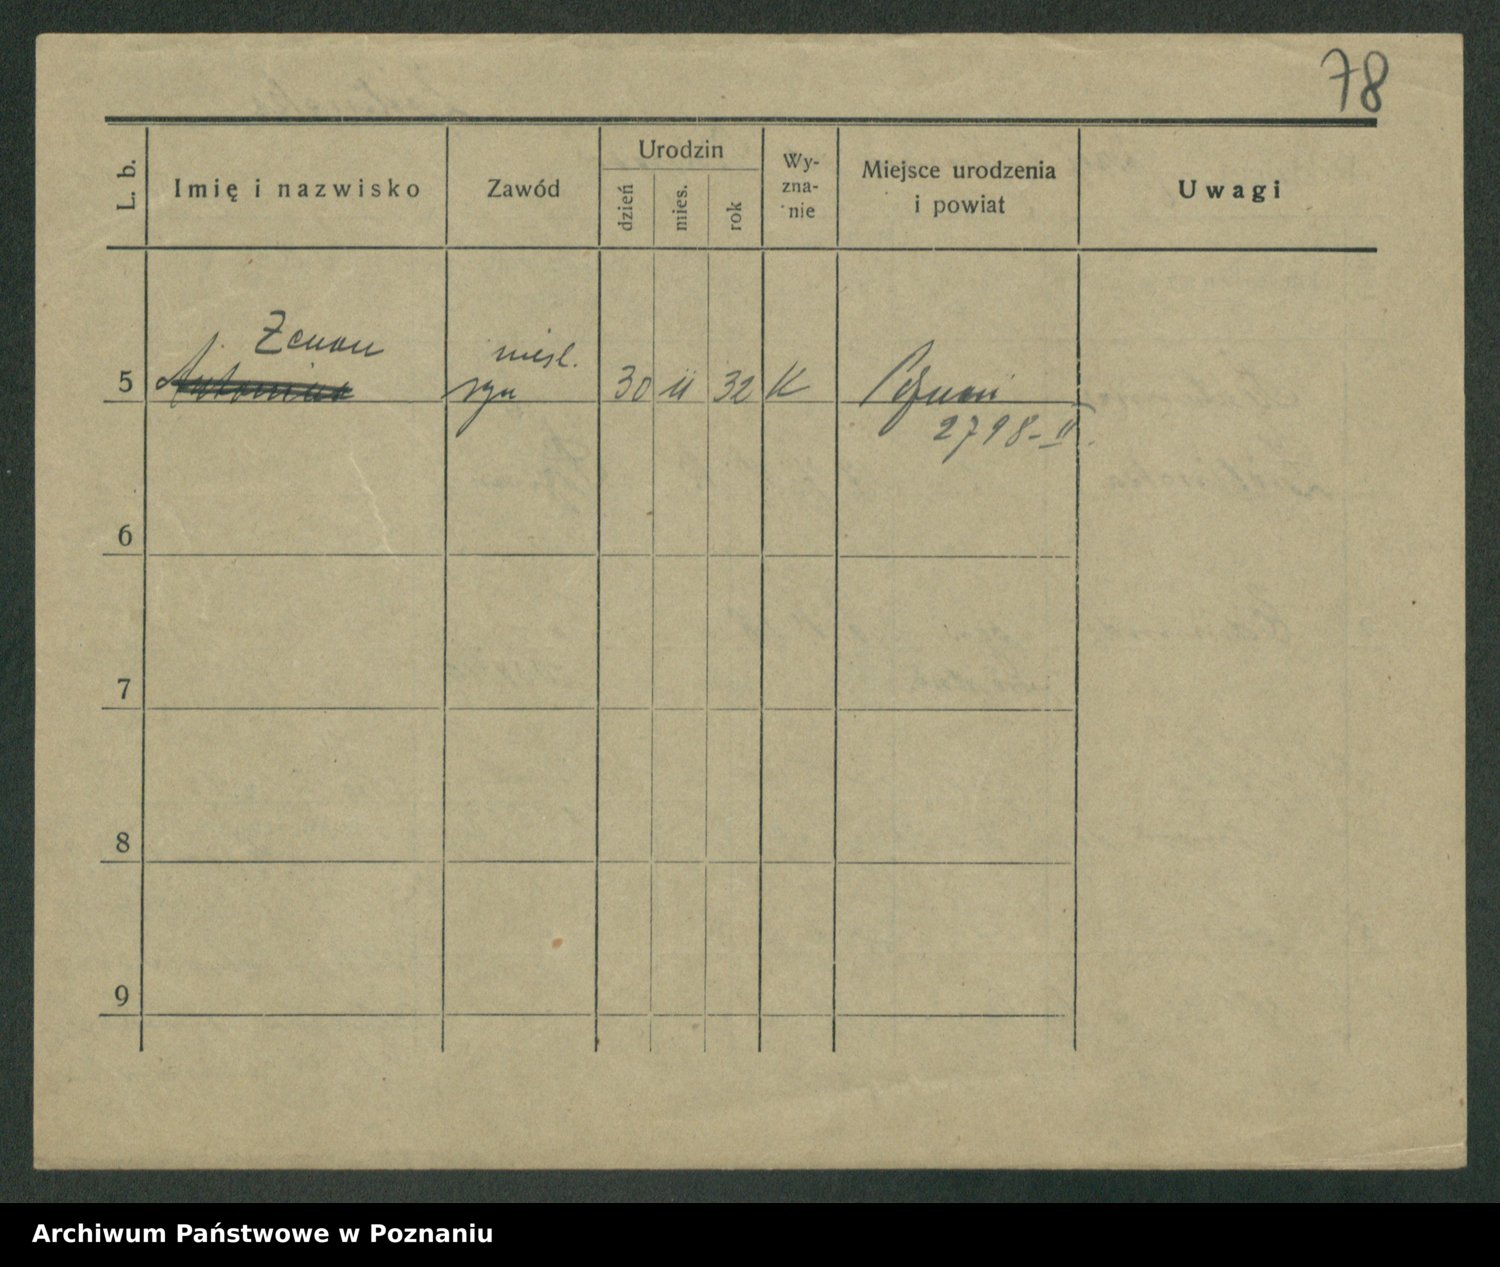 78
L. b.
Imię i nazwisko
Zawód
Urodzin
dzień
mies.
rok
Wy-
zna-
nie
Miejsce urodzenia
i powiat
Uwagi
Zenon
5 Antonina
nieśl.
syn
30 11 32 K
Poznań
2798-II.
6
7
8
9
Archiwum Państwowe w Poznaniu